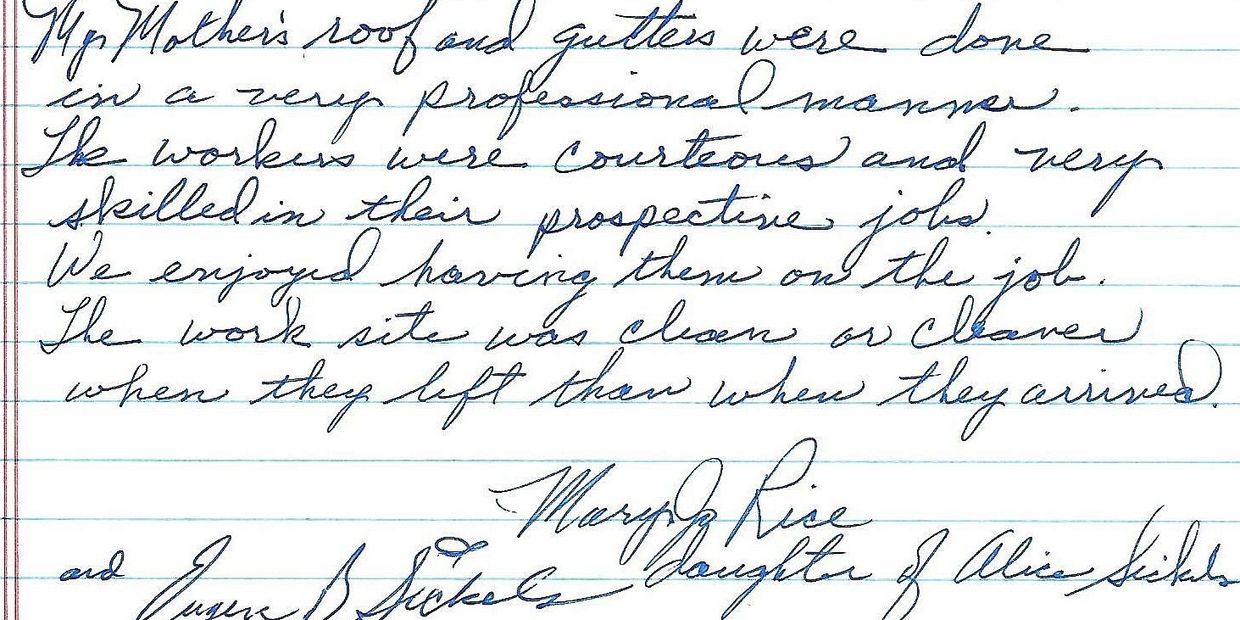 My Mother's roof and gutters were done
in a very professional manner.
The workers were courteous and very
skilled in their prospective jobs.
We enjoyed having them on the job.
The work site was clean or cleaner
when they left than when they arrived.
Mary Jo Rice
daughter of Alice Sickels
and Eugene B Sickels